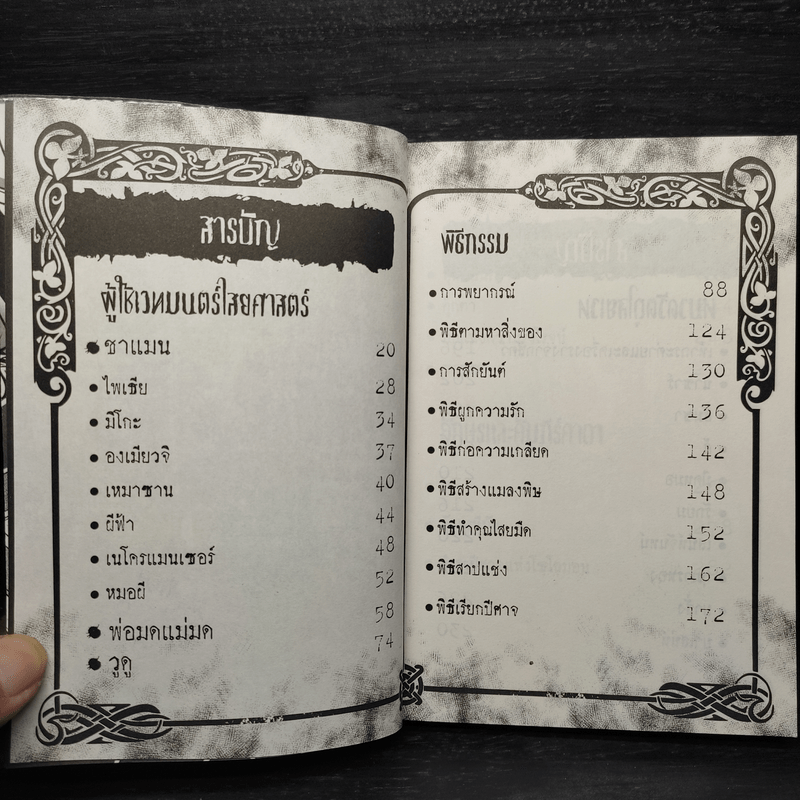 สารบัญ
ผู้ใช้เวทมนตร์ไสยศาสตร์
● ชาแมน 20
● ไพเธีย 28
● มิโกะ 34
● องเมียวจิ 37
● เหมาซาน 40
● ผีฟ้า 44
● เนโครแมนเซอร์ 48
● หมอผี 52
● พ่อมดแม่มด 58
● วูดู 74
พิธีกรรม
● การพยากรณ์ 88
● พิธีตามหาสิ่งของ 124
● การสักยันต์ 130
● พิธีผูกความรัก 136
● พิธีก่อความเกลียด 142
● พิธีสร้างแมลงพิษ 148
● พิธีทำคุณไสยมืด 152
● พิธีสาปแช่ง 162
● พิธีเรียกปีศาจ 172